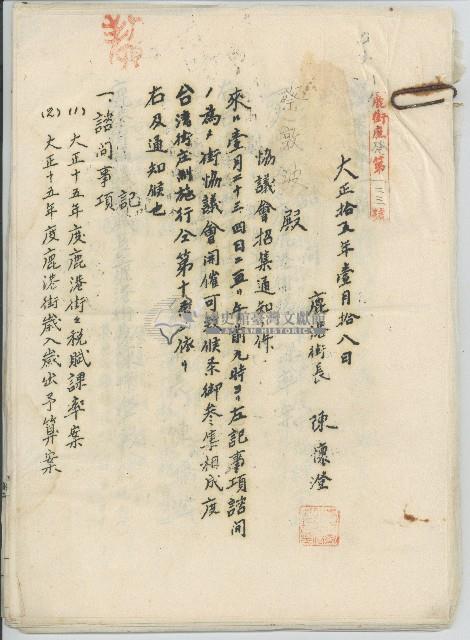 鹿街庶發第一三三號
大正拾五年壹月拾八日
鹿港街長 陳懷澄
蔡敦波 殿
協議會招集通知ノ件
來ル壹月二十三四日二五日午前九時ヨリ左記事項諮問
ノ為メ街協議會開催可致候条御参集相成度
台湾街庄制施行令第十條ニ依リ
右及通知候也
記
一、諮問事項
(1) 大正十五年度鹿港街々税賦課率案
(2) 大正十五年度鹿港街歳入歳出予算案